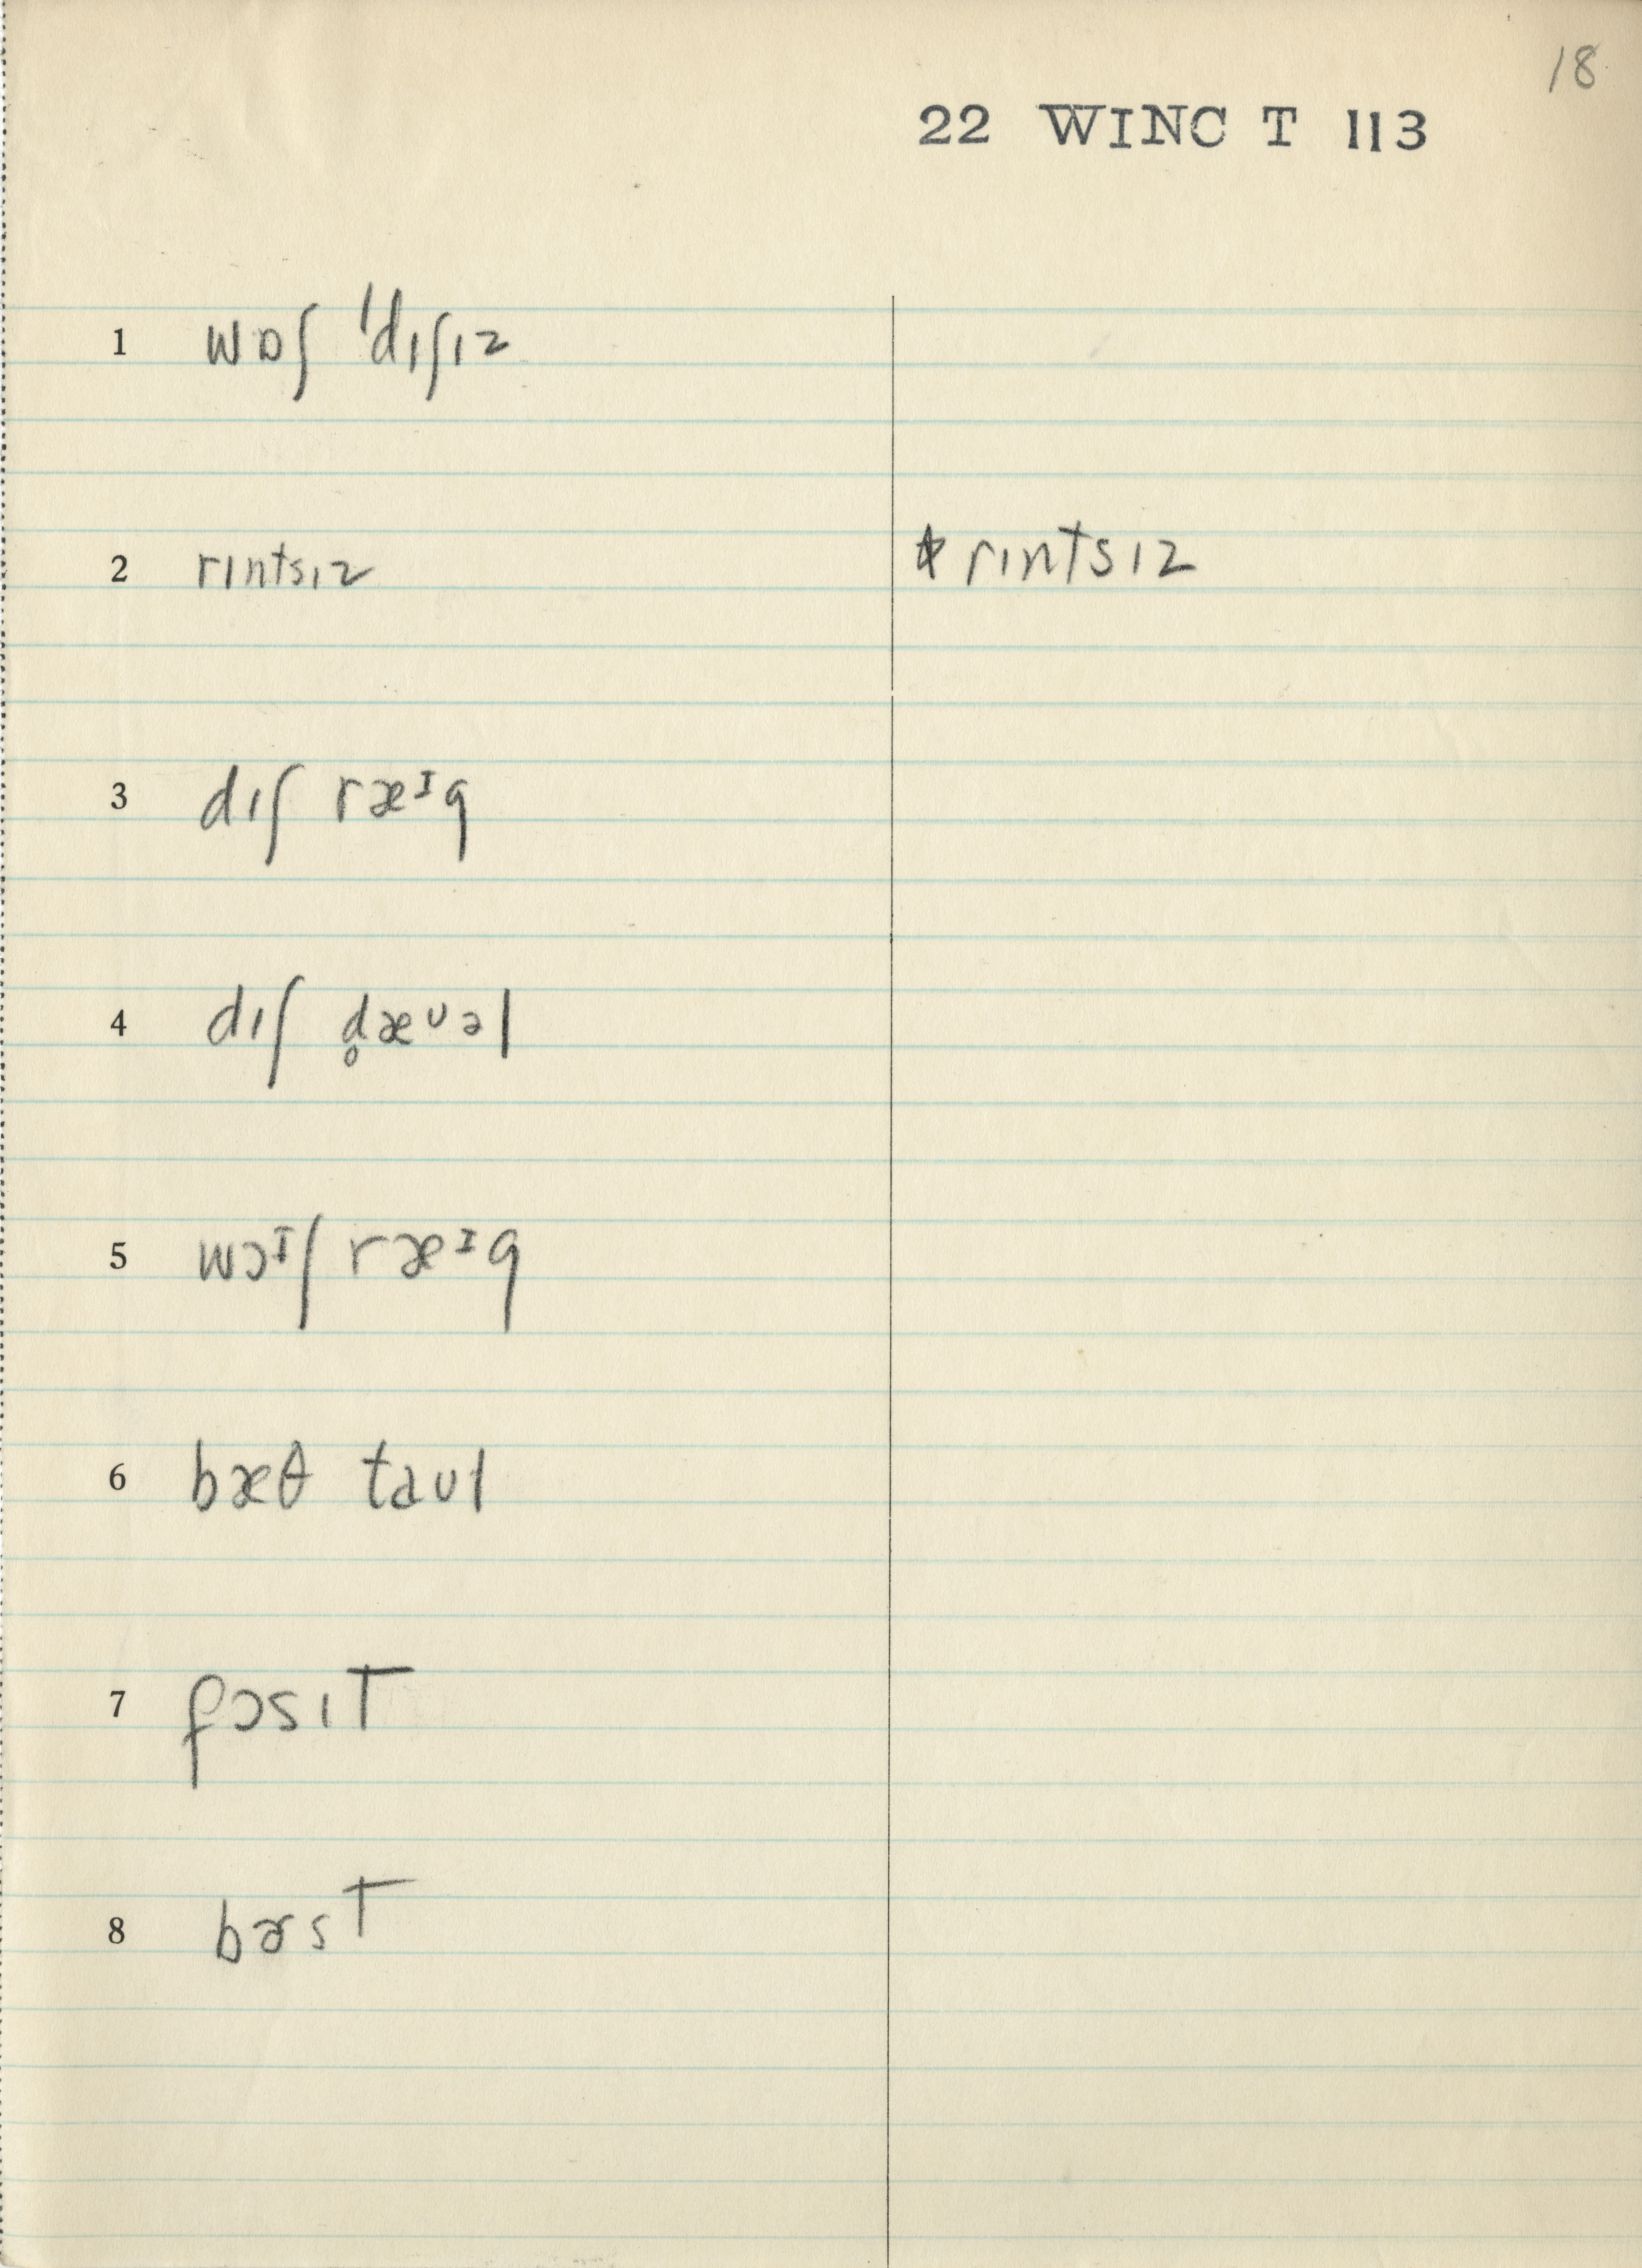 18
22 WINC T 113
1 wɒʃ ˈdɪʃɪz
2 rɪntsɪz ⋆ rɪntsɪz
3 dɪʃ ræᴵg
4 dɪʃ d̥æᶷəl
5 wɔᴵʃ ræᴵg
6 bæθ taʊl
7 fɔsɪT
8 bɚsT